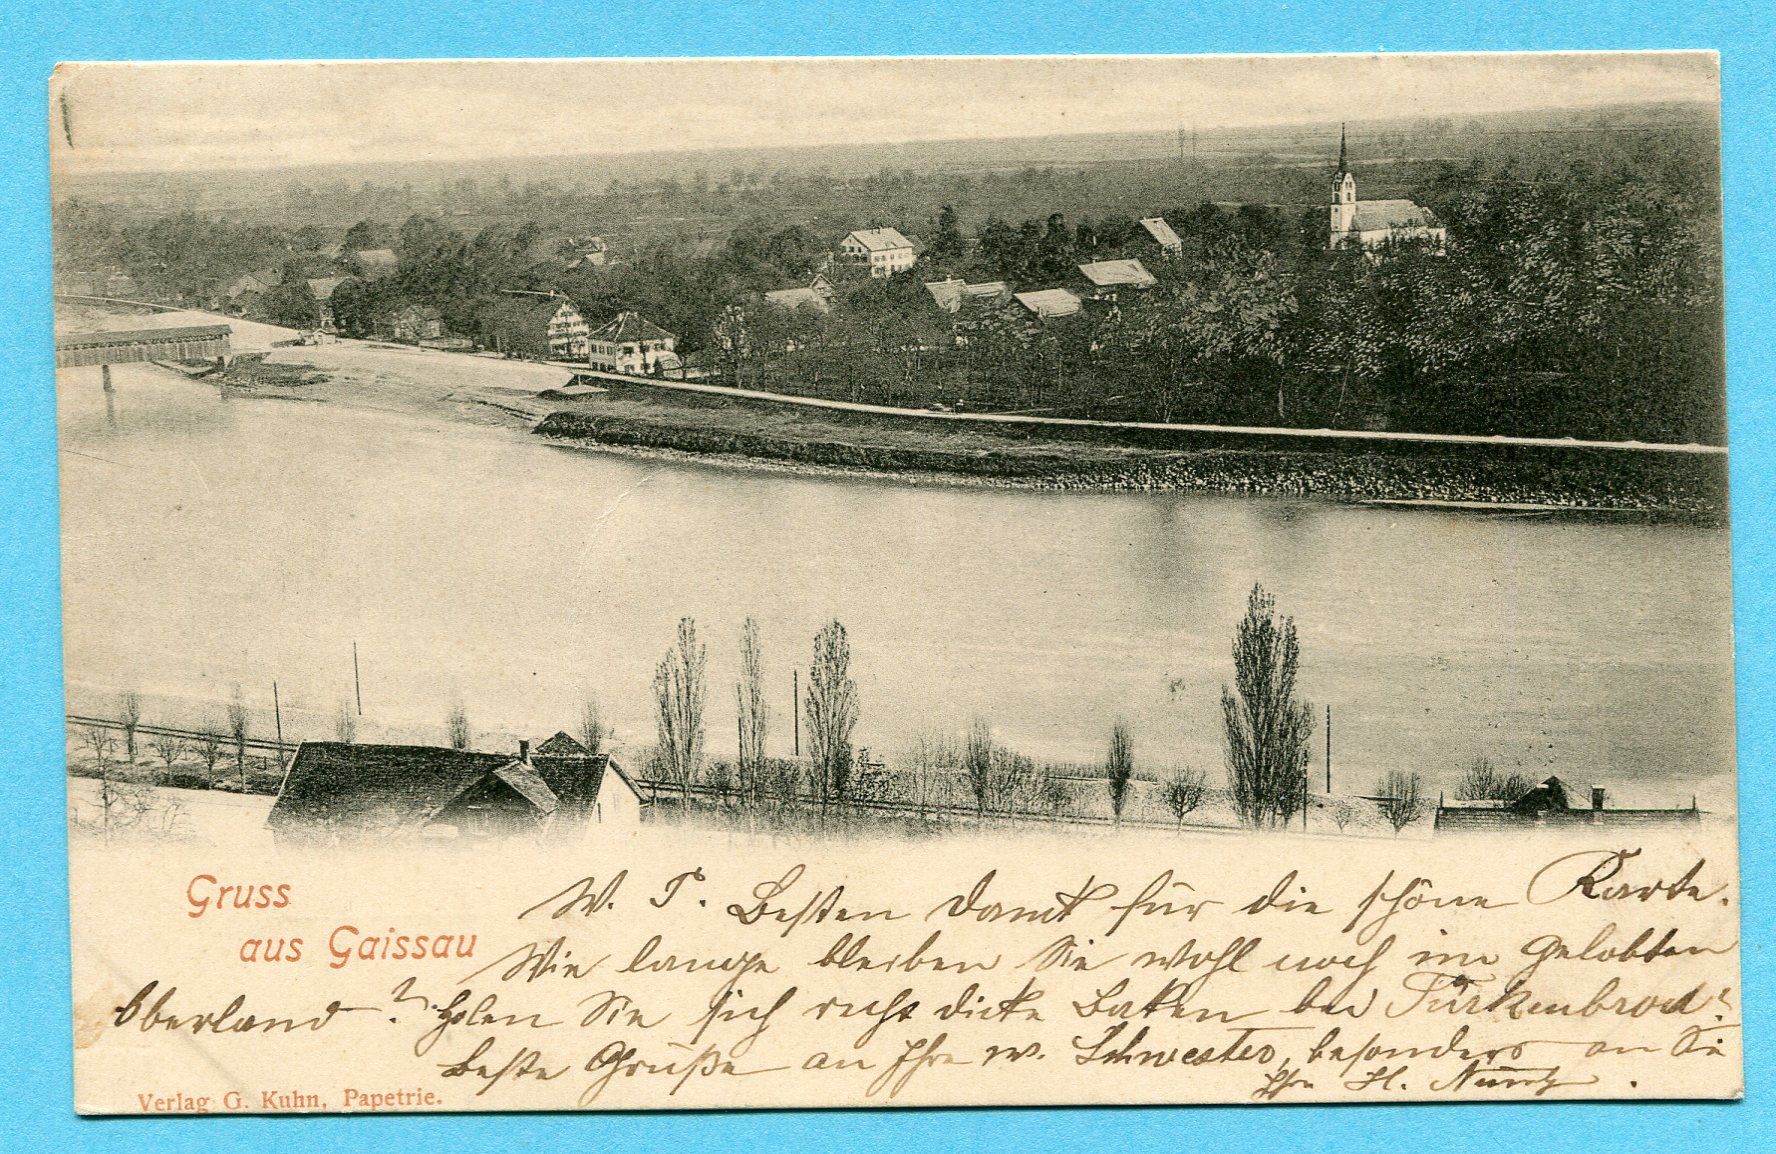 Gruss
aus Gaissau
W. T. Besten Dank für die schöne Karte.
Wie lange bleiben Sie wohl noch im gelobten
Oberland? Holen Sie sich recht dicke Backen bei Türkenbrod!
Beste Grüße an Ihre w. Schwester, besonders an Sie
Ihr H.
Verlag G. Kuhn, Papetrie.